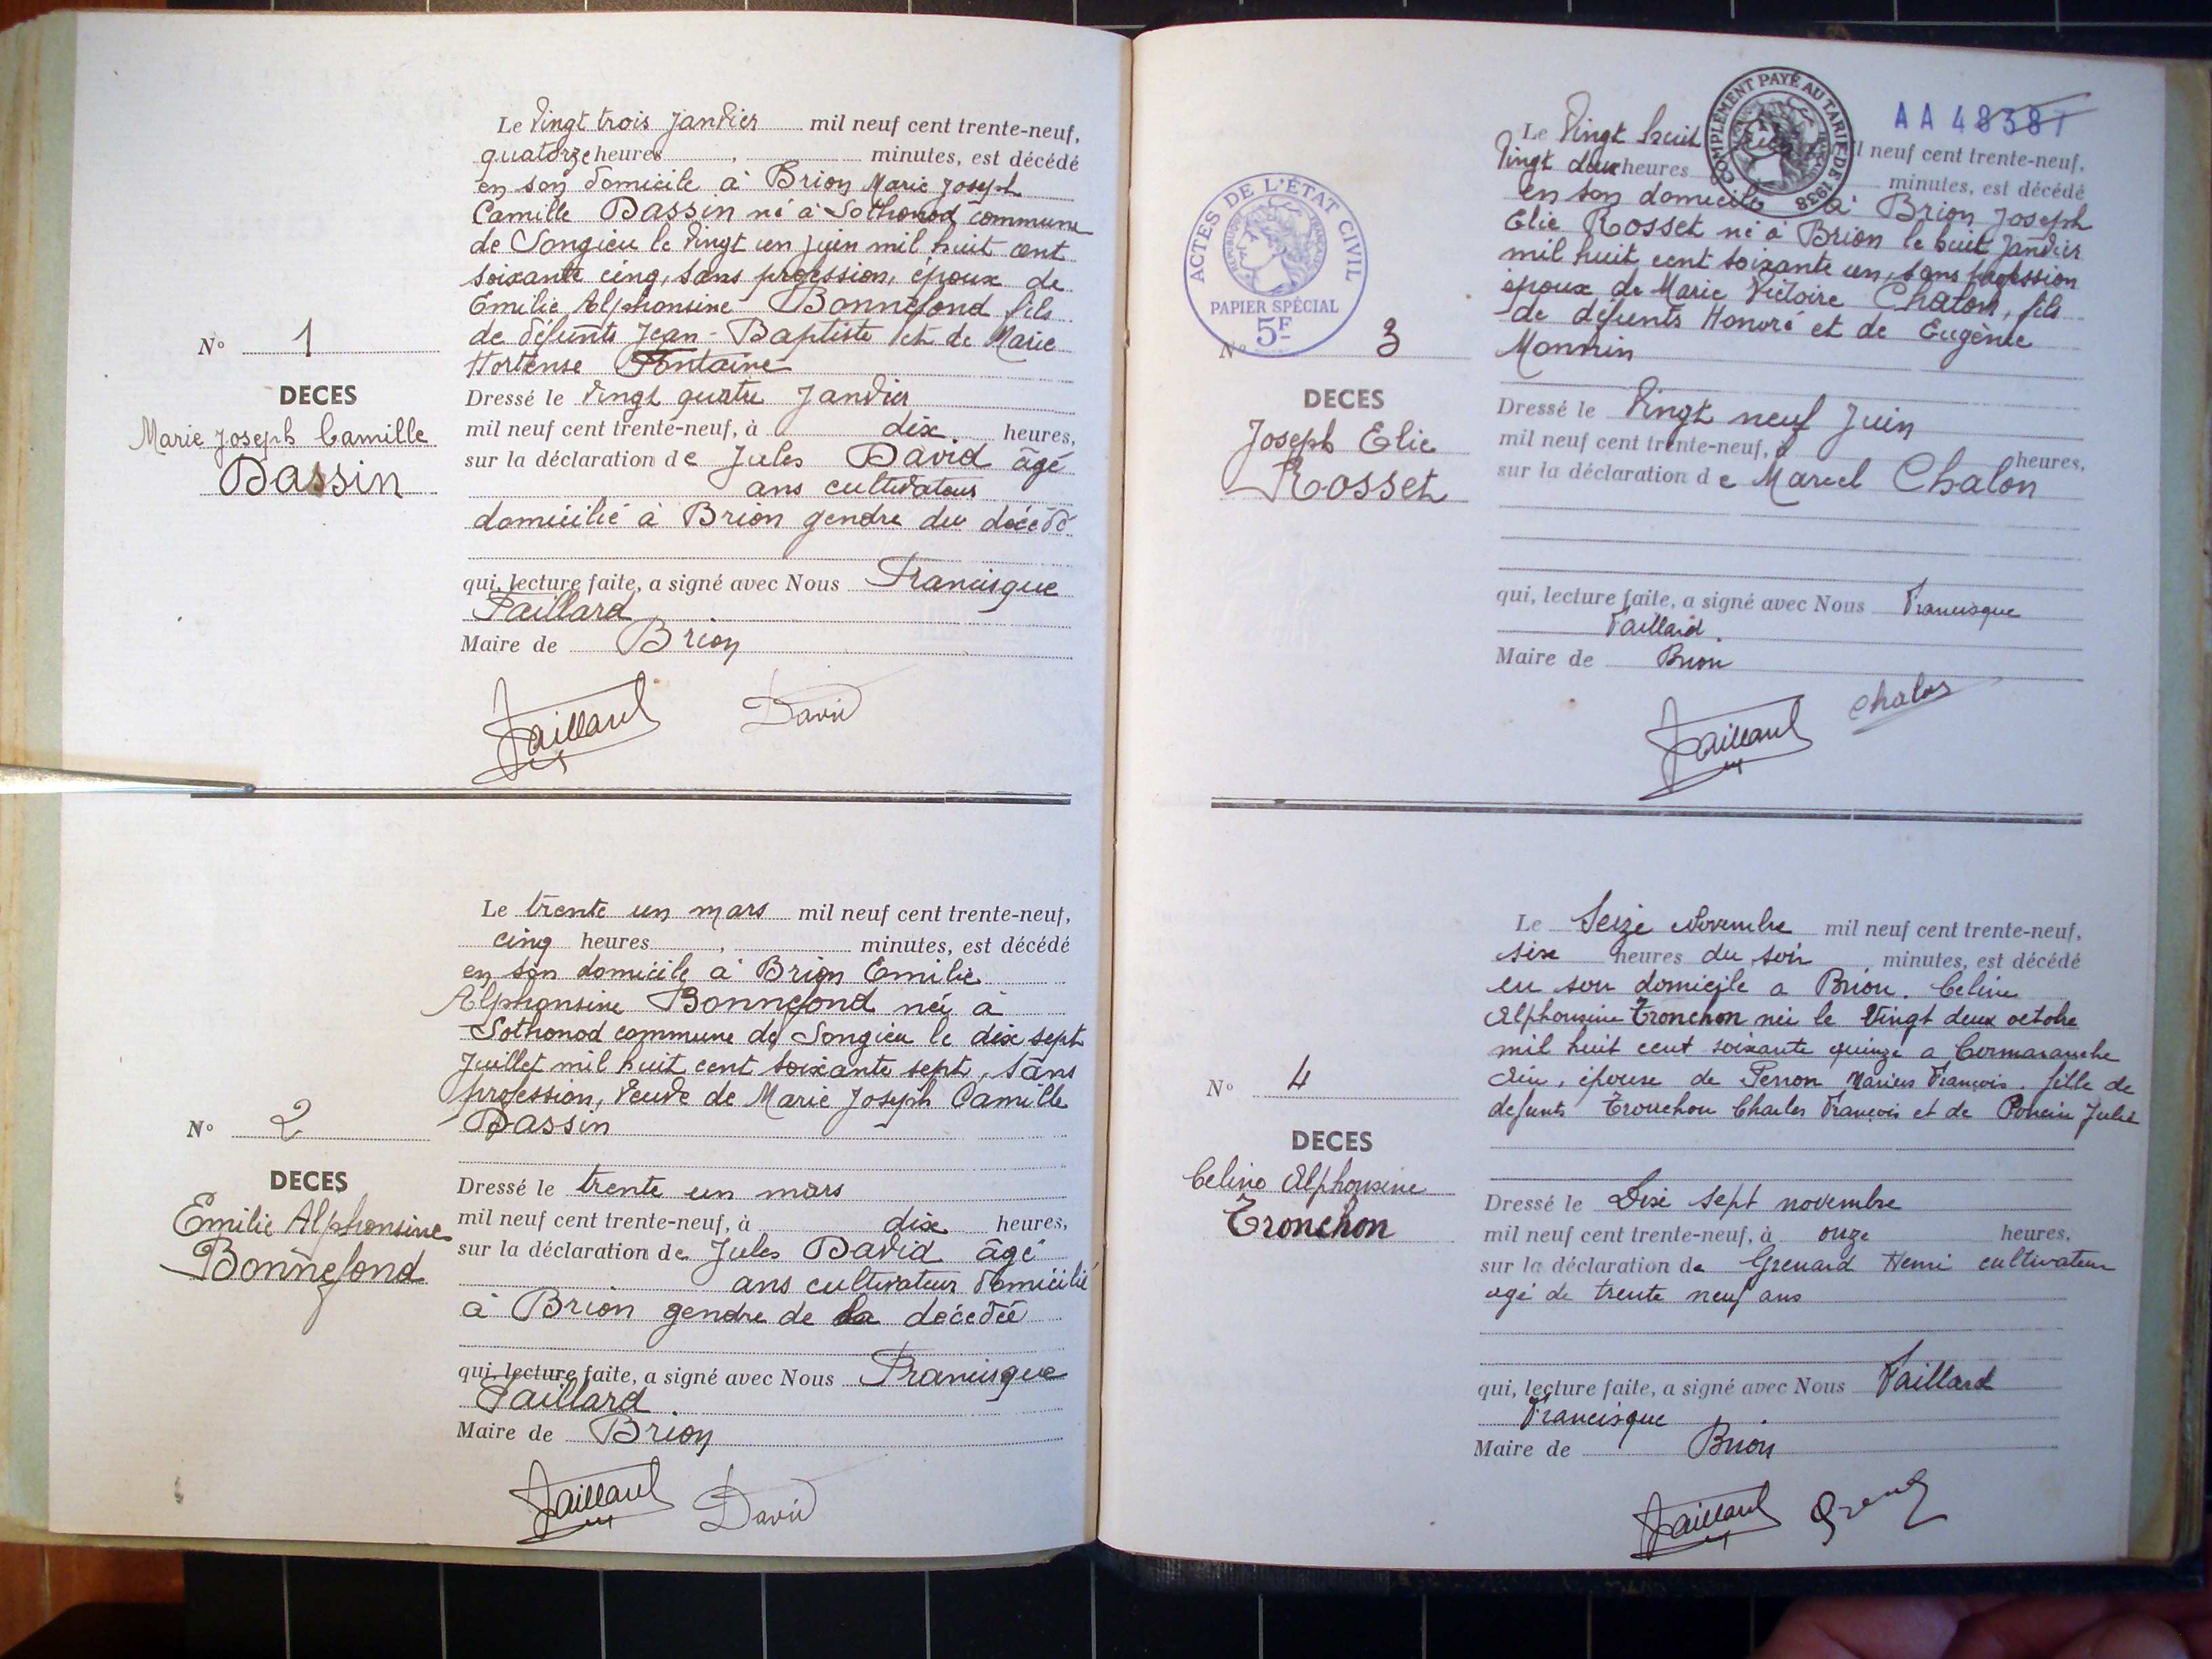 Le Vingt trois Janvier mil neuf cent trente-neuf,
quatorze heures , minutes, est décédé
en son domicile à Brion Marie Joseph
Camille Dassin né à Sothonod commune
de Songieu le Vingt un Juin mil huit cent
soixante cinq, sans profession, époux de
Emilie Alphonsine Bonnefond fils
de défunts Jean-Baptiste et de Marie
Hortense Fontaine
N° 1
DECES
Marie Joseph Camille
Dassin
Dressé le Vingt quatre Janvier
mil neuf cent trente-neuf, à dix heures,
sur la déclaration de Jules David âgé
ans cultivateur
domicilié à Brion gendre du décédé
qui, lecture faite, a signé avec Nous Francisque
Paillard
Maire de Brion
Paillard David
Le trente un mars mil neuf cent trente-neuf,
cinq heures , minutes, est décédé
en son domicile à Brion Emilie
Alphonsine Bonnefond née à
Sothonod commune de Songieu le dix sept
Juillet mil huit cent soixante sept, sans
profession, Veuve de Marie Joseph Camille
Dassin
N° 2
DECES
Emilie Alphonsine
Bonnefond
Dressé le trente un mars
mil neuf cent trente-neuf, à dix heures,
sur la déclaration de Jules David âgé
ans cultivateur domicilié
à Brion gendre de la décédée
qui, lecture faite, a signé avec Nous Francisque
Paillard
Maire de Brion
Paillard David
COMPLÉMENT PAYÉ AU TARIF DE 1938
AA 48387
Le Vingt huit mil neuf cent trente-neuf,
Vingt deux heures minutes, est décédé
en son domicile à Brion Joseph
Elie Rosset né à Brion le huit Janvier
mil huit cent soixante un, sans profession
époux de Marie Victoire Chalon, fils
de défunts Honoré et de Eugènie
Monnin
ACTES DE L'ÉTAT CIVIL
RÉPUBLIQUE FRANÇAISE
PAPIER SPÉCIAL
5F
N° 3
DECES
Joseph Elie
Rosset
Dressé le Vingt neuf Juin
mil neuf cent trente-neuf, à heures,
sur la déclaration de Marcel Chalon
qui, lecture faite, a signé avec Nous Francisque
Paillard.
Maire de Brion
Paillard Chalon
Le Seize Novembre mil neuf cent trente-neuf,
six heures du soir minutes, est décédé
en son domicile a Brion. Celine
Alphonsine Tronchon née le Vingt deux octobre
mil huit cent soixante quinze a Cormaranche
Ain, épouse de Perron Marius François. fille de
defunts Tronchon Charles François et de Poncin Julie
N° 4
DECES
Celine Alphonsine
Tronchon
Dressé le Dix sept novembre
mil neuf cent trente-neuf, à onze heures,
sur la déclaration de Grenard Henri cultivateur
agé de trente neuf ans
qui, lecture faite, a signé avec Nous Paillard
Francisque
Maire de Brion
Paillard